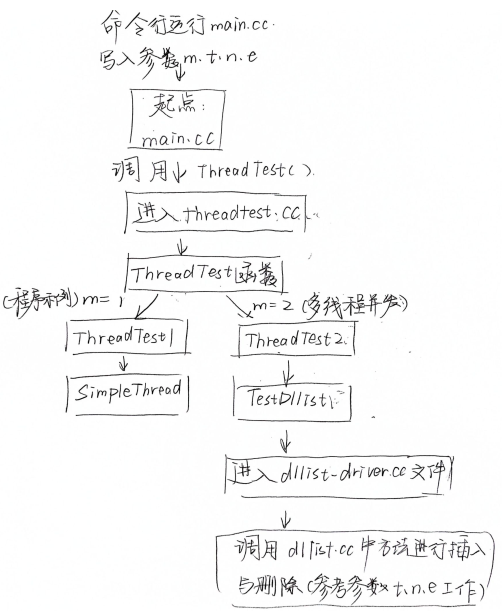 命令行运行main.cc.
写入参数m.t.n.e
起点:
main.cc
调用 ThreadTest().
进入threadtest.cc
ThreadTest函数
(程序示例) m=1
m=2 (多线程并发)
ThreadTest1
ThreadTest2.
SimpleThread
TestDllist
进入dllist-driver.cc文件
调用dllist.cc中方法进行插入
与删除(参考参数t.n.e工作)